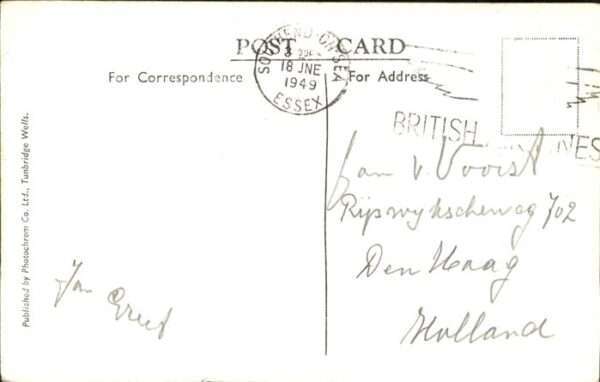 POST CARD
For Correspondence
For Address
SOUTHEND-ON-SEA
18 JNE
1949
ESSEX
BRITISH
Jan v. Voorst
Rijswykscheweg 702
Den Haag
Holland
Published by Photochrom Co. Ltd., Tunbridge Wells.